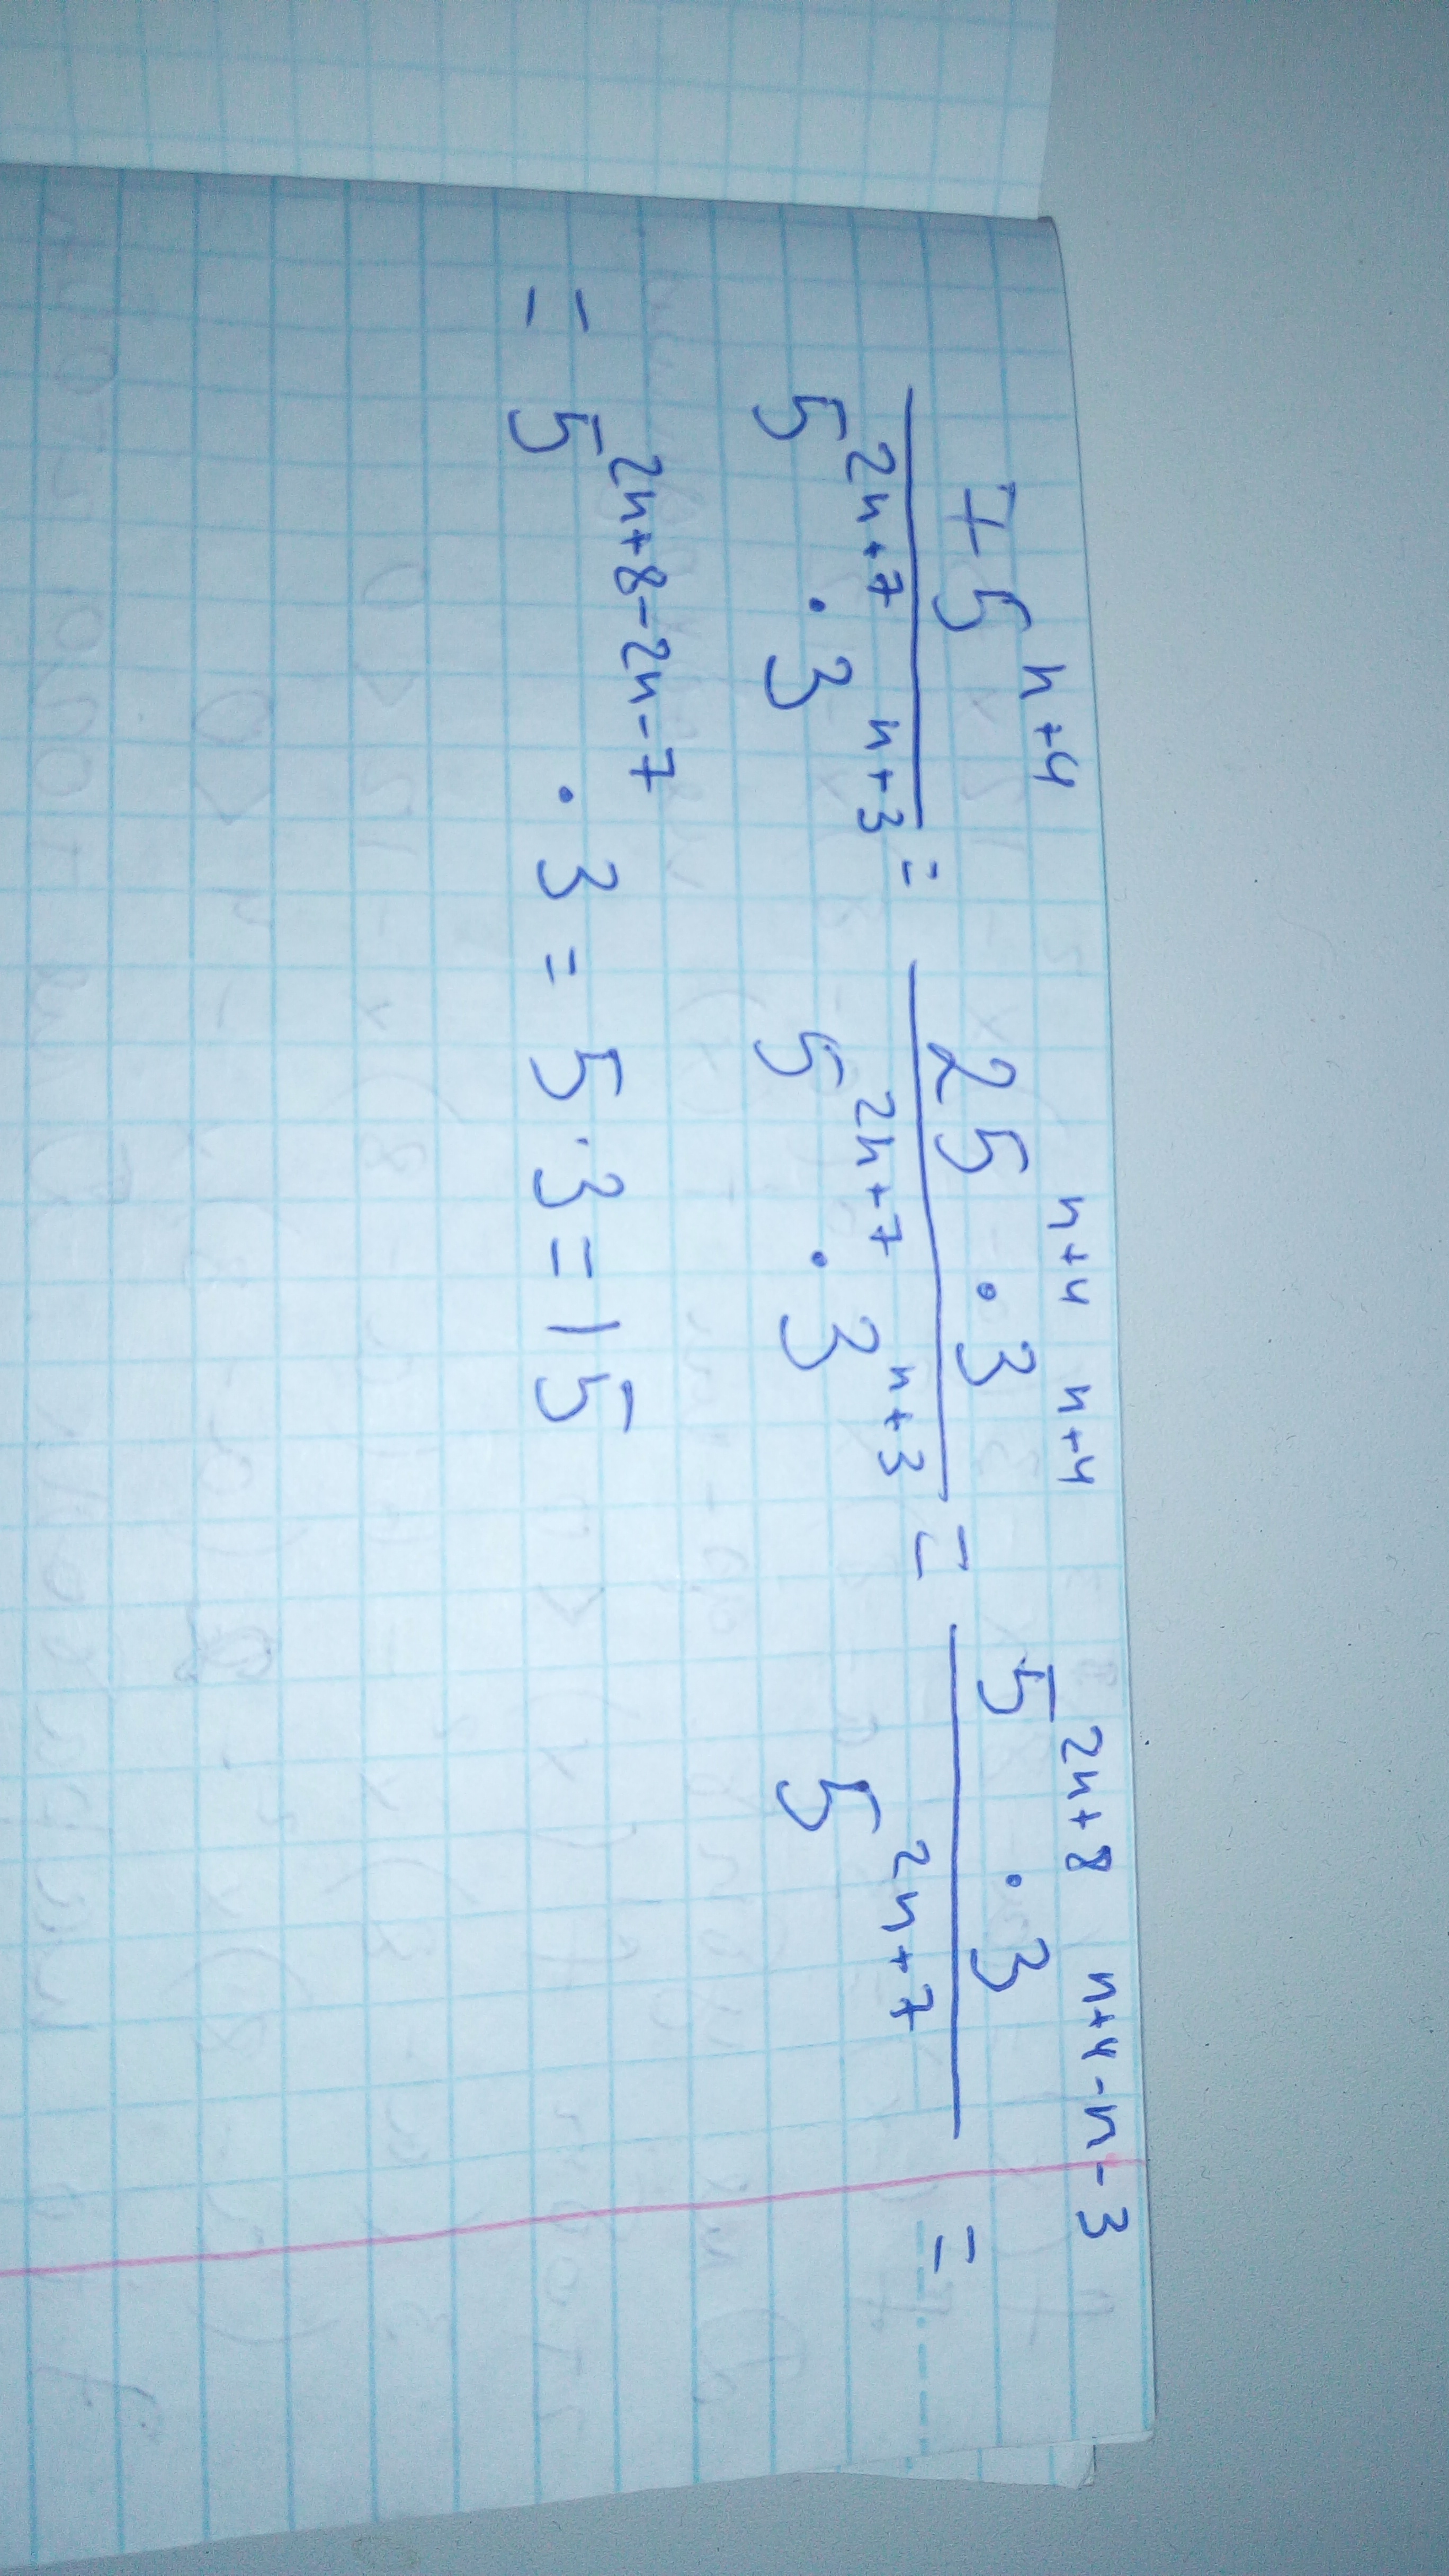 75^{n+4} / 5^{2n+7} · 3^{n+3} = 25^{n+4} · 3^{n+4} / 5^{2n+7} · 3^{n+3} = 5^{2n+8} · 3^{n+4-n-3} / 5^{2n+7} =
= 5^{2n+8-2n-7} · 3 = 5 · 3 = 15